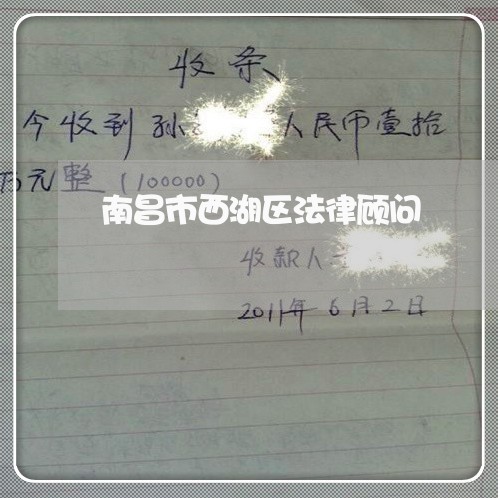 收条
今收到孙 人民币壹拾
万元整（100000）
南昌市西湖区法律顾问
收款人
2011年6月2日